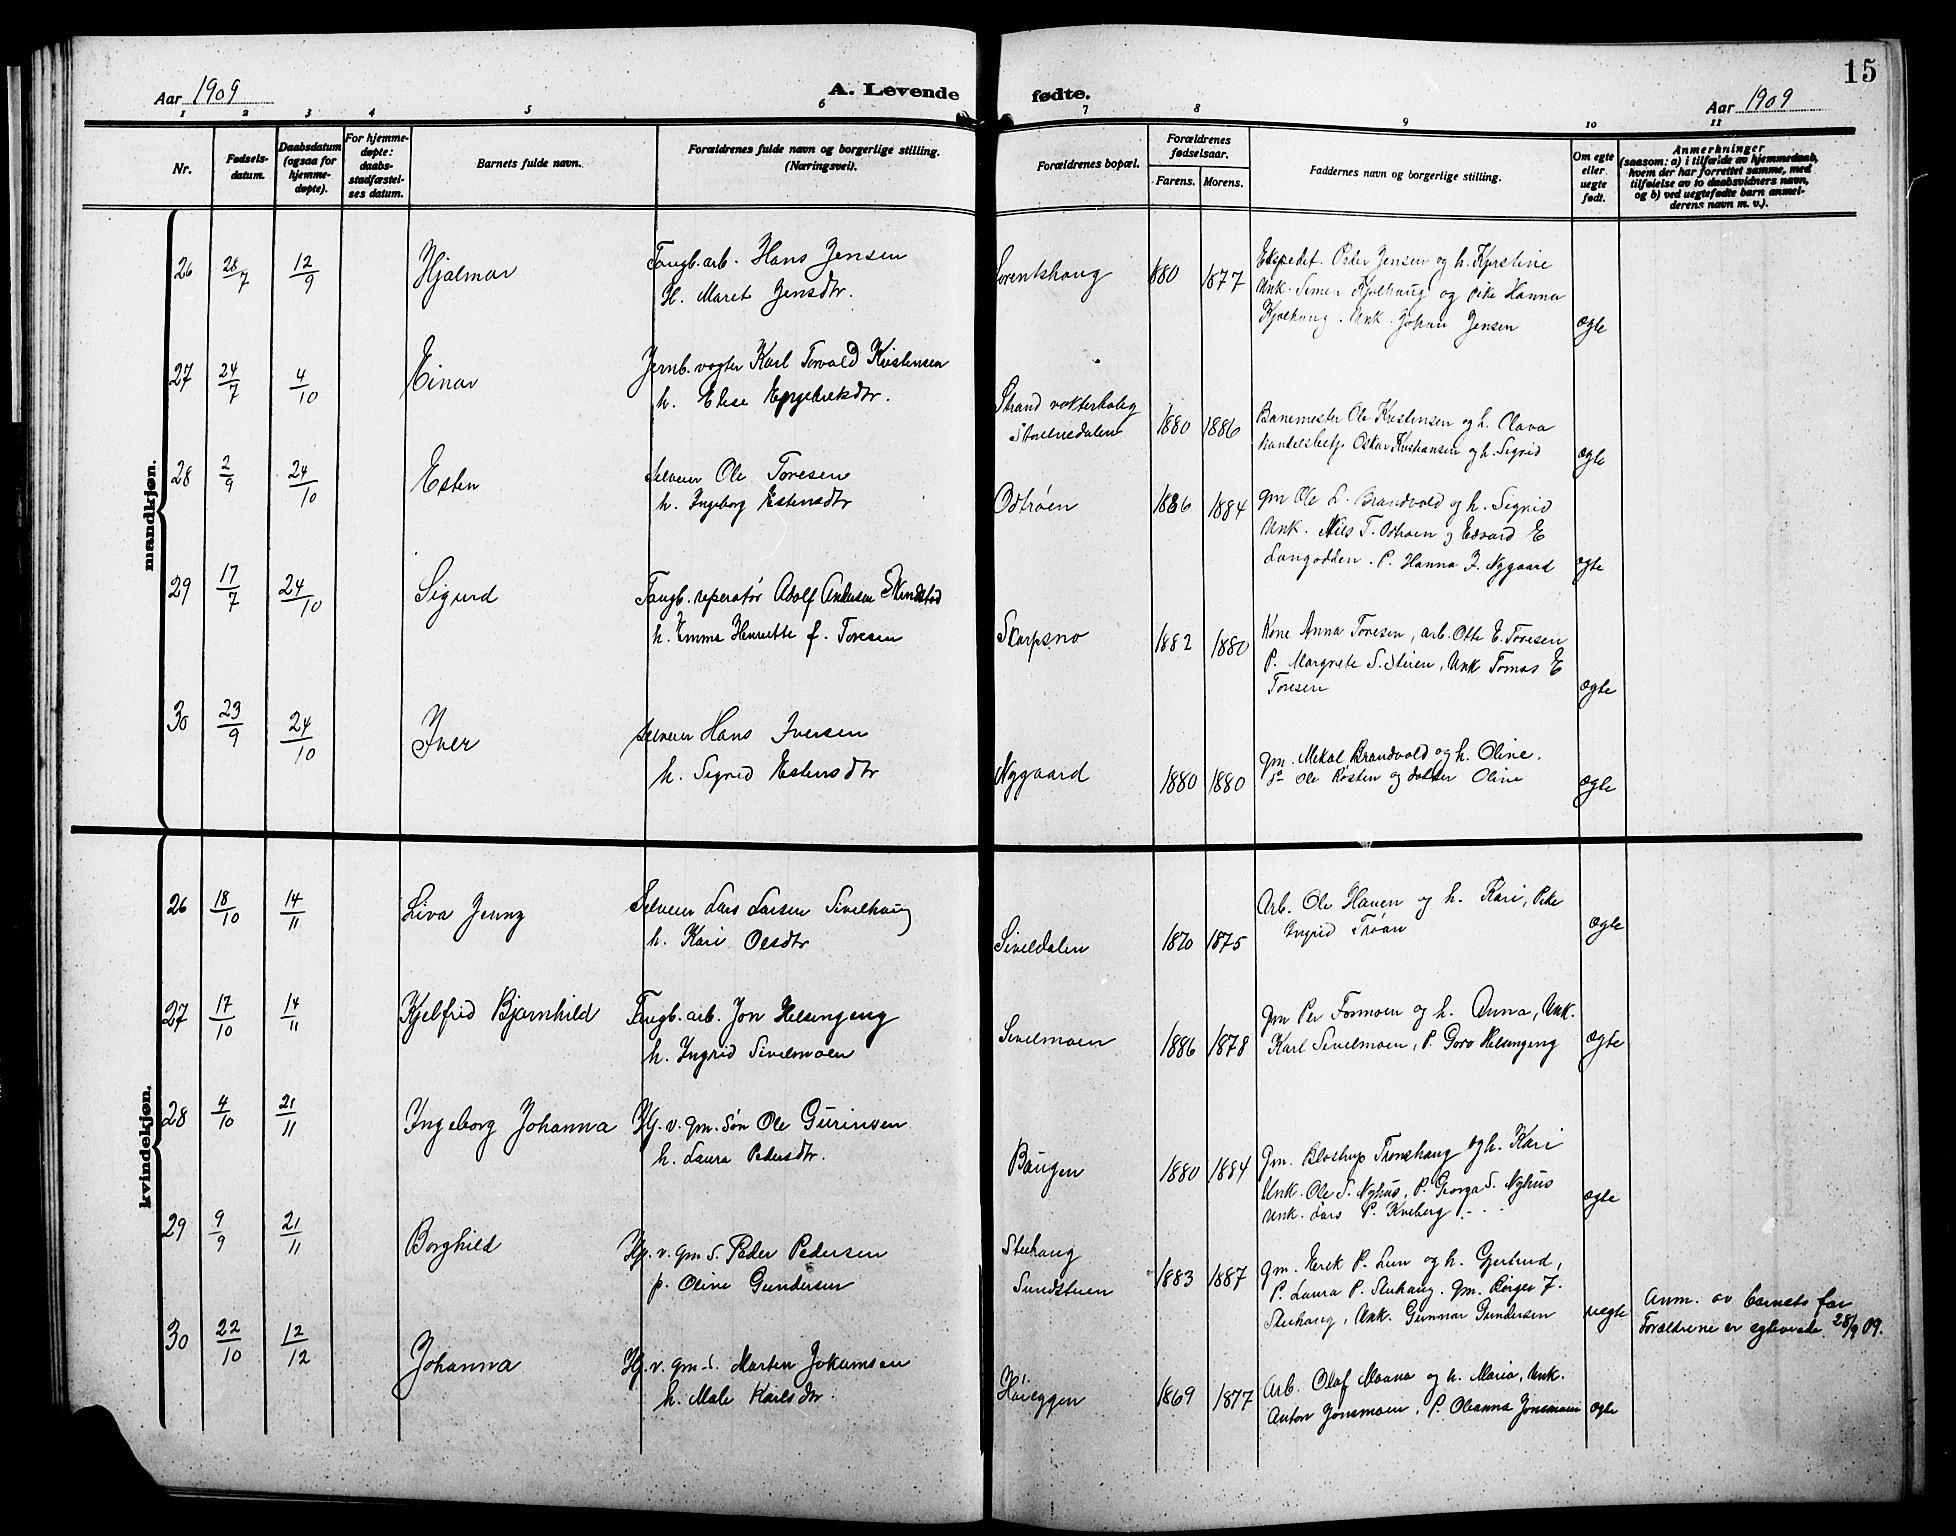 15
Aar 1909
A. Levende fødte.
Aar 1909
1 2 3 4 5 6 7 8 9 10 11
Nr.
Fødsels-
datum.
Daabsdatum
(ogsaa for
hjemme-
døpte).
For hjemme-
døpte:
daabs-
stadfæstel-
ses datum.
Barnets fulde navn.
Forældrenes fulde navn og borgerlige stilling.
(Næringsvei).
Forældrenes bopæl.
Forældrenes
fødselsaar.
Farens. Morens.
Faddernes navn og borgerlige stilling.
Om egte
eller
uegte
født.
Anmerkninger
(saasom: a) i tilfælde av hjemmedaab,
hvem der har forrettet samme, med
tilføielse av to daabsvidners navn,
og b) ved uegtefødte barn anmel-
derens navn m. v.).
mandkjøn.
26 28/7 12/9 Hjalmar
Fangb. arb. Hans Jensen
H. Maret Jensdtr.
880 1877
Ekspedit. Peder Jensen og h. Kjerstine
Unk. Simen Kjølhaug og Pike Hanna
Kjølhaug. Unk. Johan Jensen
ægte
27 24/7 4/10 Einar
Jernb. vogter Karl Torvald Kristensen
h. Elise Engebrektsdtr.
Strand vokterbolig
1880 1886
Banemester Ole Kristensen og h. Olava
Handelsbetj. Oskar Kristiansen og h. Sigrid
ægte
28 2/9 24/10 Esten
Selveier Ole Toresen
h. Ingeborg Estensdtr
Odtrøen
1886 1884
gm Ole L. Brandvold og h. Sigrid
Unk. Nils T. Odtrøen og Edvard E
Langodden. P. Hanna J. Nygaard
ægte
29 17/7 24/10 Sigurd
Fangb. reperatør Adolf Andersen
h. Emma Henriette f. Toresen
Skarpsno
1882 1880
Kone Anna Toresen, arb. Otto E. Toresen
P. Margrete S. Steien, Unk Tomas E
Toresen
ægte
30 23/9 24/10 Iver
Selveier Hans Iversen
h. Sigrid Estensdtr
Nygaard
1880 1880
gm. Mekal Brandvold og h. Oline.
do Ole Røsten og datter Oline
ægte
kvindekjøn.
26 18/10 14/11 Liva Jenny
Selveier Lars Larsen Sivilhaug
h. Kari Olsdtr
Siveldalen
1870 1875
Arb. Ole Hauen og h. Kari, Pike
Ingrid Trøan
ægte
27 17/10 14/11 Kjelfrid Bjørnhild
Fangb. arb. Jon Helsingeng
h. Ingrid Sivilmoen
Sivilmoen
1886 1878
gm Per Formoen og h. Anna, Unk.
Karl Sivilmoen, P. Goro Helsingeng
ægte
28 4/10 21/11 Ingeborg Johanna
Hj. v. gm. søn Ole Gurinsen
h. Laura Pedersdtr.
Baugen
1880 1884
gm. Tronshaug og h. Kari
Unk. Ole S. Nyhus, P. Georga S. Nyhus
Unk. Lars P. Kveberg
ægte
29 9/9 21/11 Borghild
Hj. v. gm s. Peder Pedersen
p. Oline Gundersen
Steihaug
Sundsteien
1883 1887
gm. Erek P. Lien og h. Gjertrud,
P. Laura P. Steihaug. gm. Børger J.
Steihaug, Unk. Gunnar Gundersen
uegte
Anm. av barnets far
Forældrene er egteviede 28/9 09.
30 22/10 12/12 Johanna
Hj. v. gm. s. Morten Jokumsen
h. Male Karlsdtr.
1869 1877
Arb. Olaf Moana og h. Maria, Unk.
Anton Jonsmoen, P. Oleanna Jonsmoen
ægte